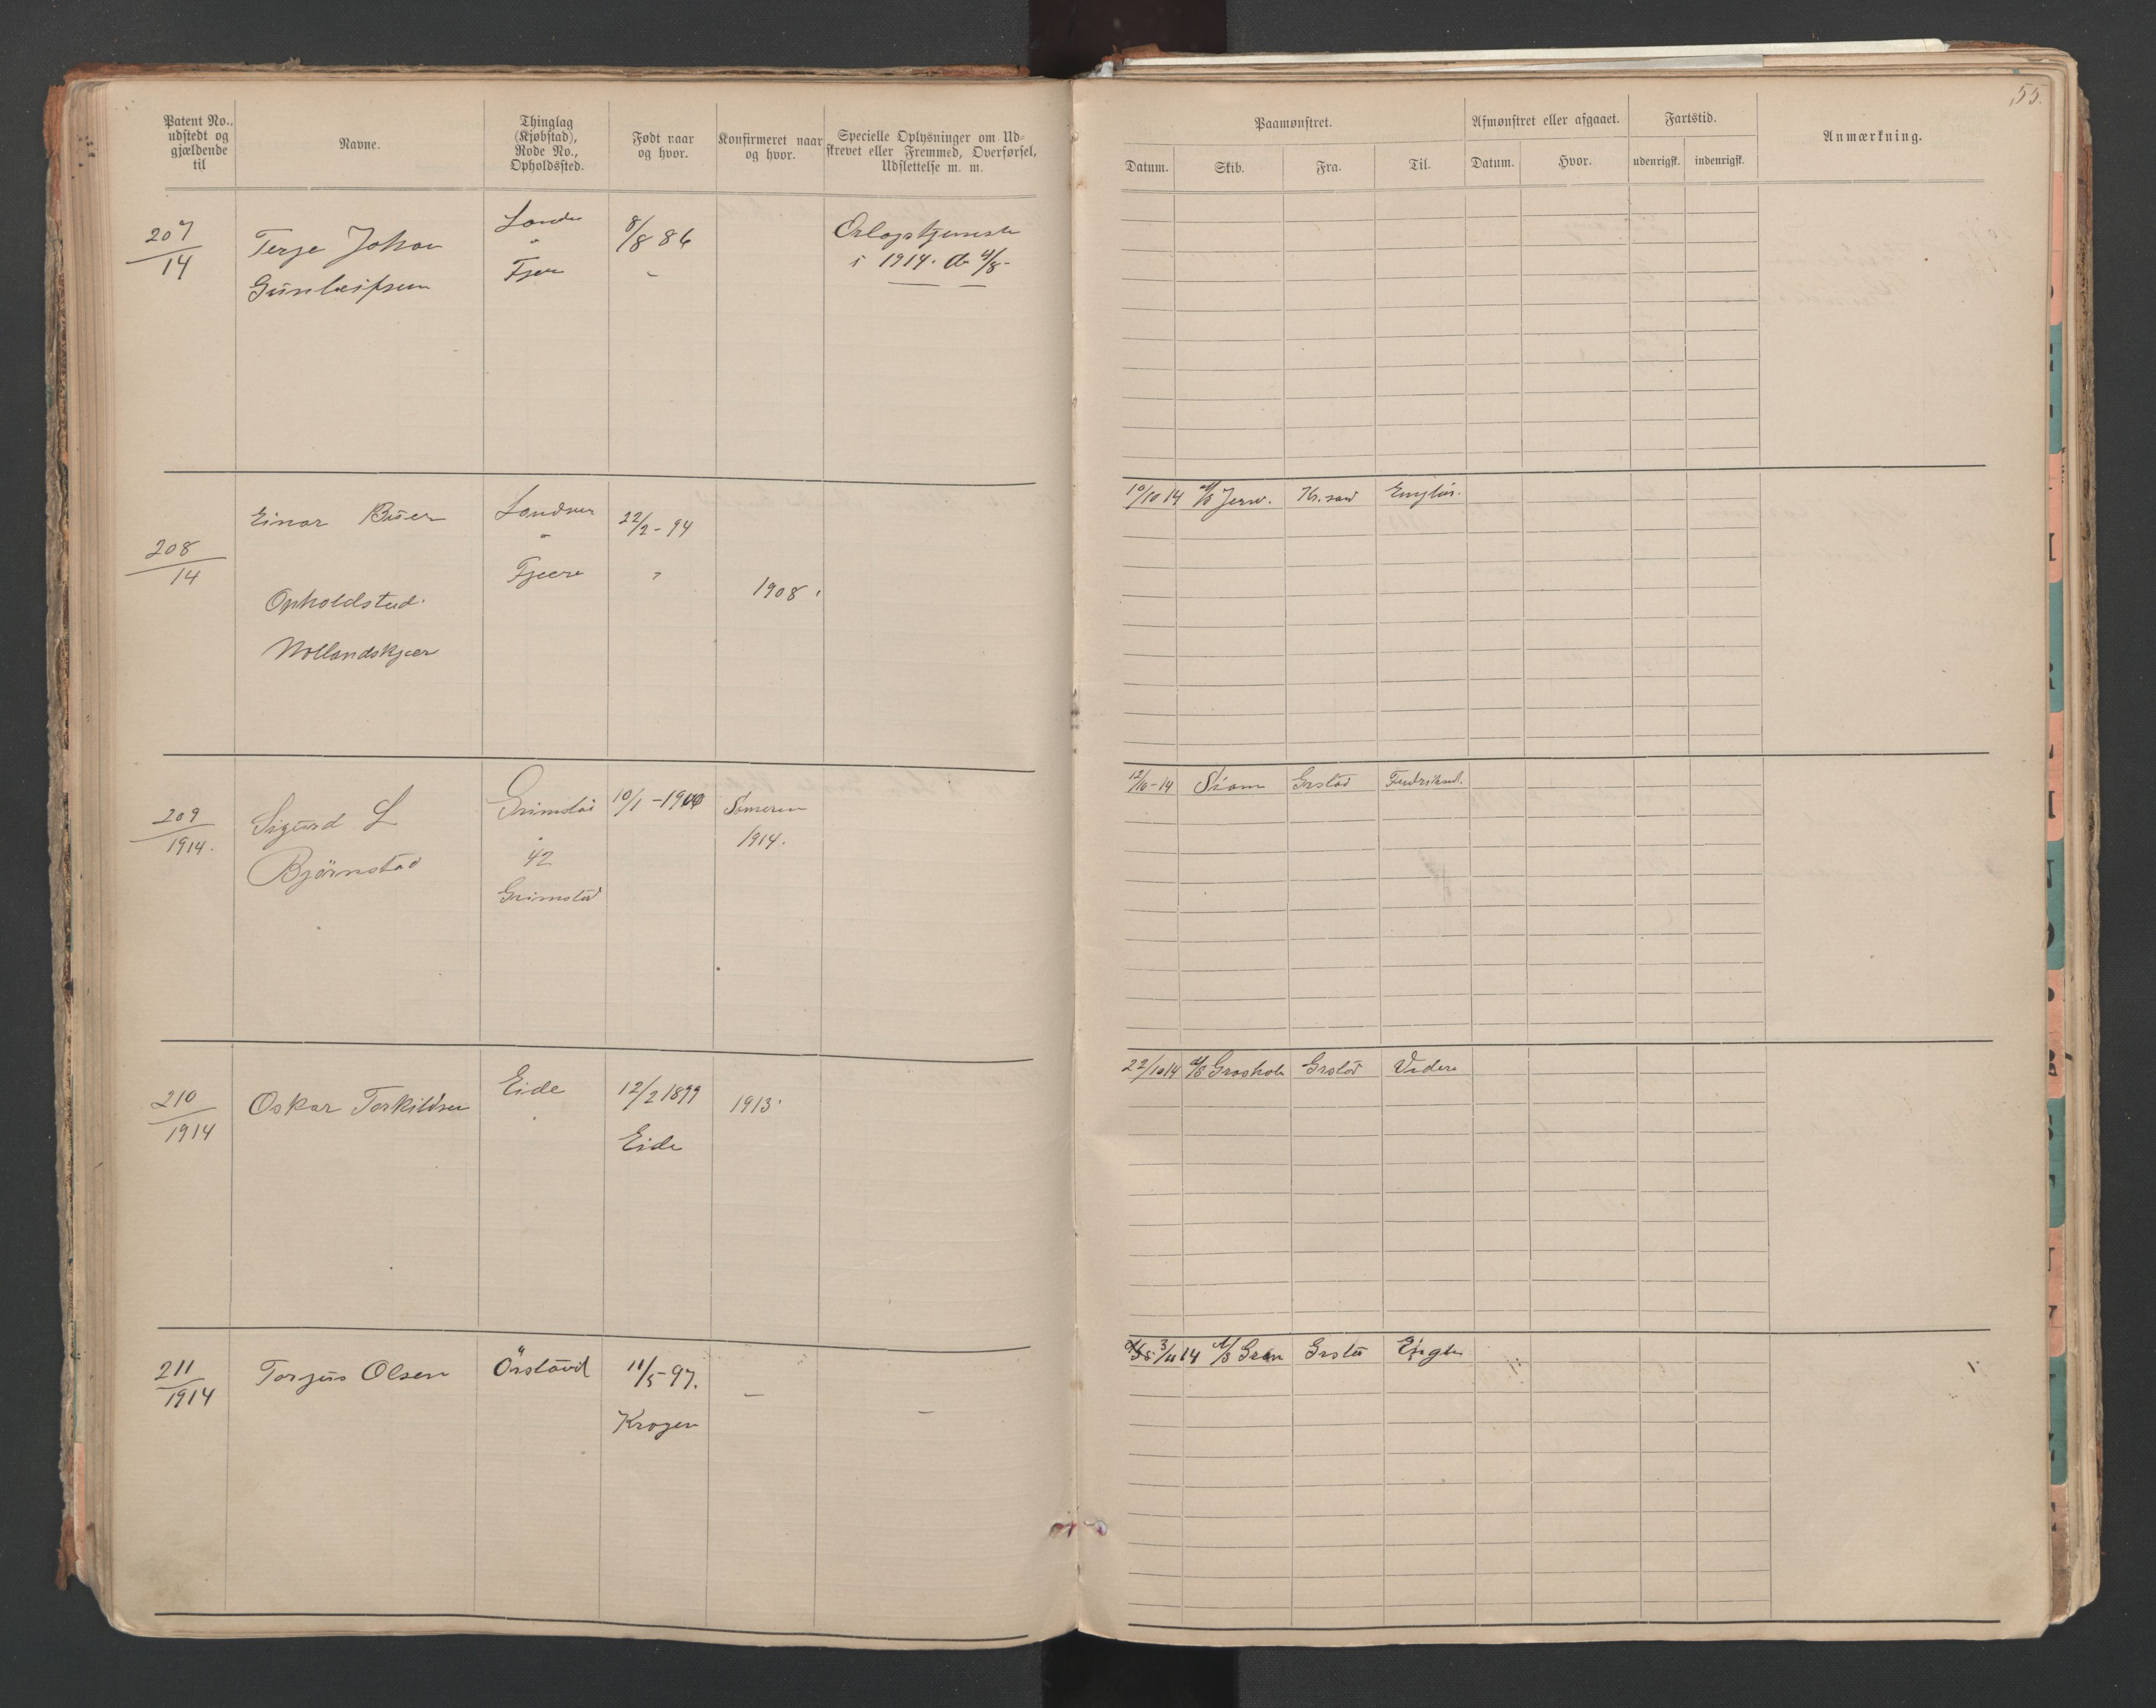 55.
Patent No., udstedt og gjældende til
Navne.
Thinglag (Kjøbstad), Rode No., Opholdssted.
Født naar og hvor.
Konfirmeret naar og hvor.
Specielle Oplysninger om Udskrevet eller Fremmed, Overførsel, Udslettelse m. m.
Paamønstret.
Afmønstret eller afgaaet.
Fartstid.
Anmærkning.
Datum.
Skib.
Fra.
Til.
Datum.
Hvor.
udenrigsk.
indenrigsk.
207/14
Terje Johan
Gunleifsen
Lande
"
Fjær
8/8 86
Orlogstjeneste
i 1914. 4/8-
208/14
Einar Buer
Opholdsted.
Mollandskjær
Landvir
"
Fjære
22/2-94
"
1908.
10/10 14
Kr.sand
209/1914.
Sigurd L
Bjørnstad
Grimstad
"
42
Grimstad
10/1-1900
1914.
12/10-14
Siam
Grstad
210/1914
Oskar Torkildsen
Eide
12/2 1899
Eide
1913.
22/10 14
Grstad
211/1914
Torjus Olsen
11/5-97.
Krogen
–
–
3/11 14
Grstad